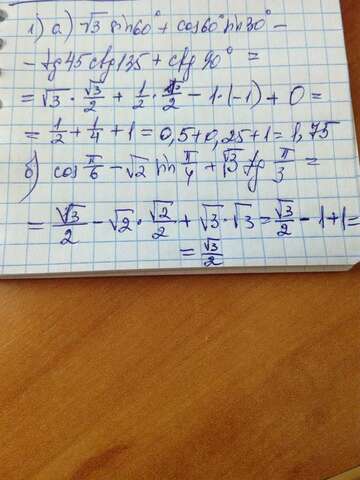 1) а) √3 sin60° + cos60° sin30° -
- tg45 ctg135 + ctg 90° =
= √3 · √3/2 + 1/2 · 1/2 - 1·(-1) + 0 =
= 1/2 + 1/4 + 1 = 0,5 + 0,25 + 1 = 1,75
б) cos π/6 - √2 sin π/4 + √3 tg π/3 =
= √3/2 - √2 · √2/2 + √3 · √3 = √3/2 - 1 + 1 =
= √3/2